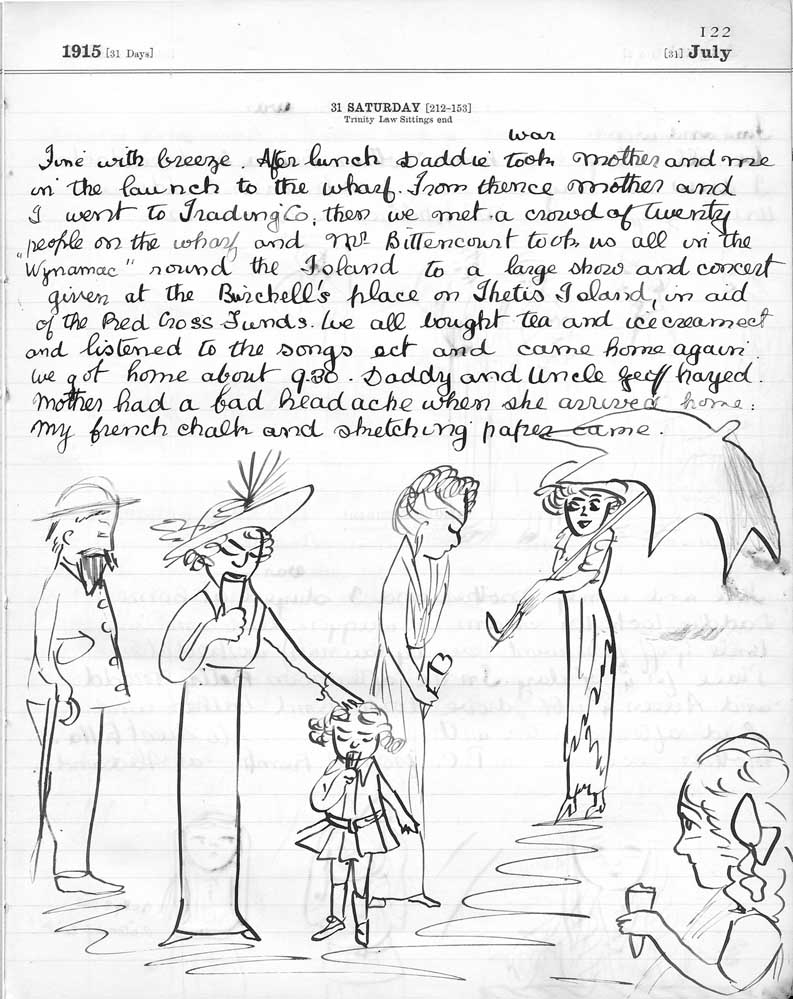 122
1915 [31 Days] [31] July
31 SATURDAY [212-153]
Trinity Law Sittings end
war
Fine with breeze. After lunch Daddie took mother and me
in the launch to the wharf. From thence mother and
I went to Trading Co, then we met a crowd of twenty
people on the wharf and Mr Bittencourt took us all in the
"Wynamac" round the Island to a large show and concert
given at the Burchell's place on Thetis Island, in aid
of the Red Cross Funds. We all bought tea and icecream ect
and listened to the songs ect and came home again.
We got home about 9.30. Daddy and Uncle Geoff hayed.
Mother had a bad headache when she arrived home.
My french chalk and sketching paper came.